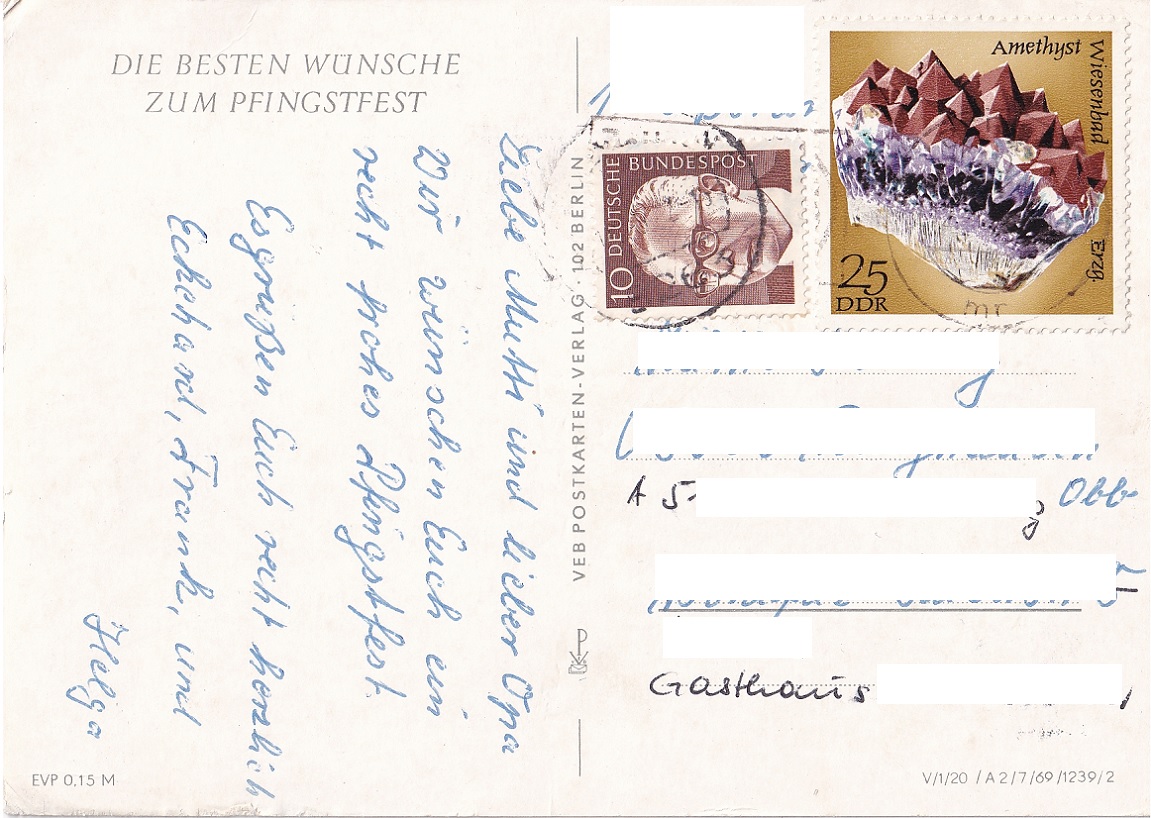 DIE BESTEN WÜNSCHE
ZUM PFINGSTFEST
Liebe Mutti und lieber Opa
Wir wünschen Euch ein
recht frohes Pfingstfest.
Es grüßen Euch recht herzlich
Eckehard, Frank, und
Helga
EVP 0,15 M
VEB POSTKARTEN-VERLAG · 102 BERLIN
10 DEUTSCHE BUNDESPOST
Amethyst
Wiesenbad
Erzg.
25
DDR
A 5-
Obb
Gasthaus
V/1/20 / A 2/7/69/1239/2